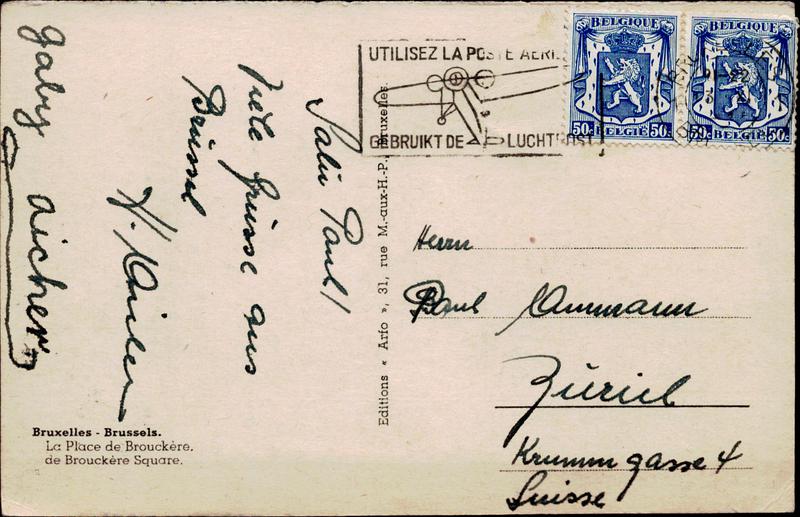 Salü Paul!
Viele Grüsse aus
Brüssel
Gaby Aicher
Bruxelles - Brussels.
La Place de Brouckère.
de Brouckère Square.
Editions « Arfo », 31, rue M.-aux-H.-P., Bruxelles.
UTILISEZ LA POSTE AERIE
GEBRUIKT DE LUCHTPOST
BELGIQUE
50c BELGIË 50c
BELGIQUE
50c BELGIË 50c
Herrn
Paul Ammann
Zürich
Krummgasse 4
Suisse